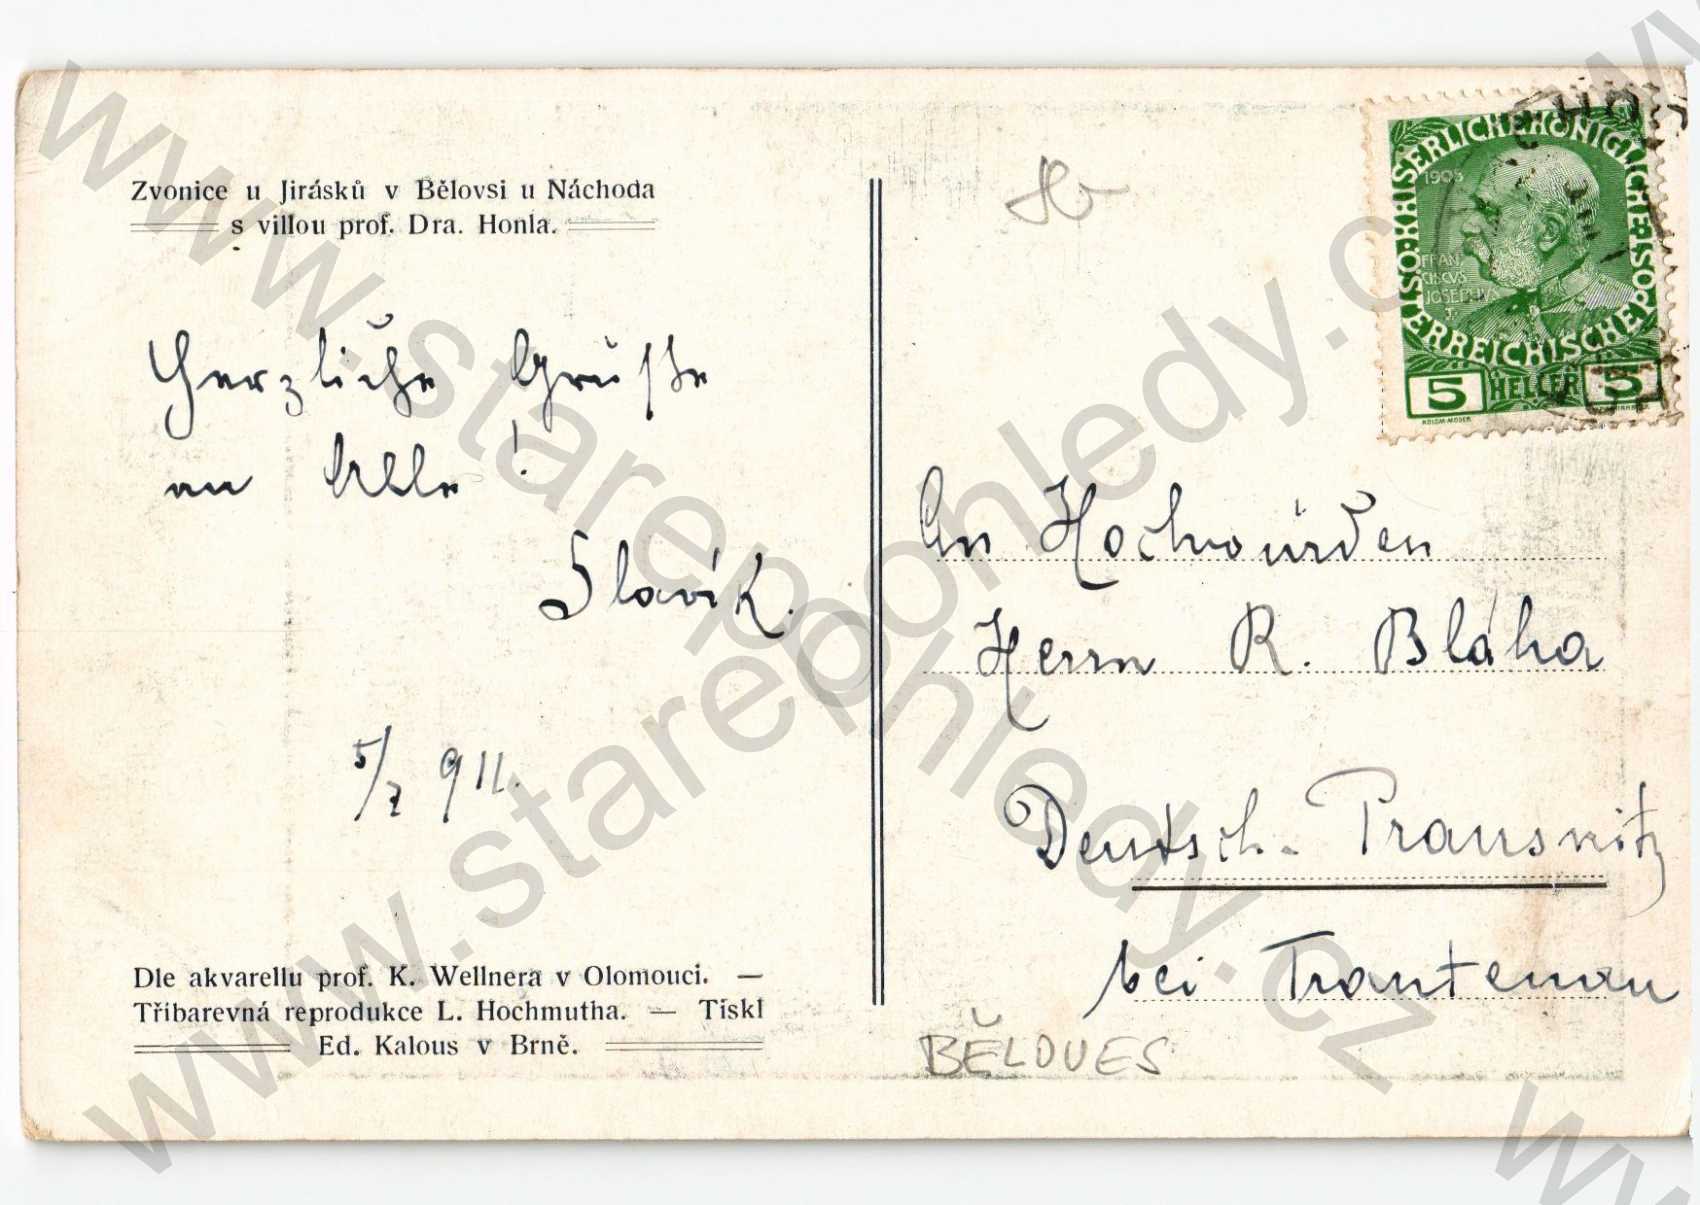 Zvonice u Jirásků v Bělovsi u Náchoda
s villou prof. Dra. Honla.
Herzliche Grüsse
an Alle!
Slavík.
5/7 911.
Dle akvarellu prof. K. Wellnera v Olomouci. —
Tříbarevná reprodukce L. Hochmutha. — Tiskl
Ed. Kalous v Brně.
KAISERLICHE KÖNIGLICHE
ÖSTERREICHISCHE POST
1908
FRAN
CISCVS
JOSEPHVS
I.
5 HELLER 5
KOLOM. MOSER
An Hochwürden
Herrn R. Bláha
Deutsch-Prausnitz
bei Trautenau
BĚLOVES
www.starepohledy.cz
www.starepohledy.cz